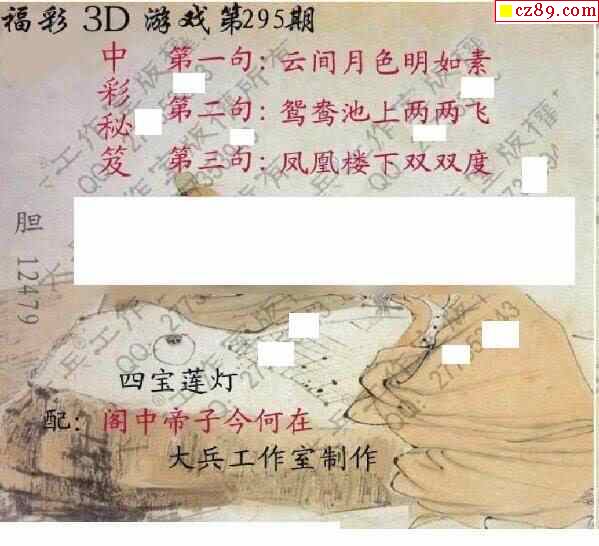 cz89.com
福彩 3D 游戏第295期
中彩秘笈
第一句：云间月色明如素
第二句：鸳鸯池上两两飞
第三句：凤凰楼下双双度
胆 12479
四宝莲灯
配：阁中帝子今何在
大兵工作室制作